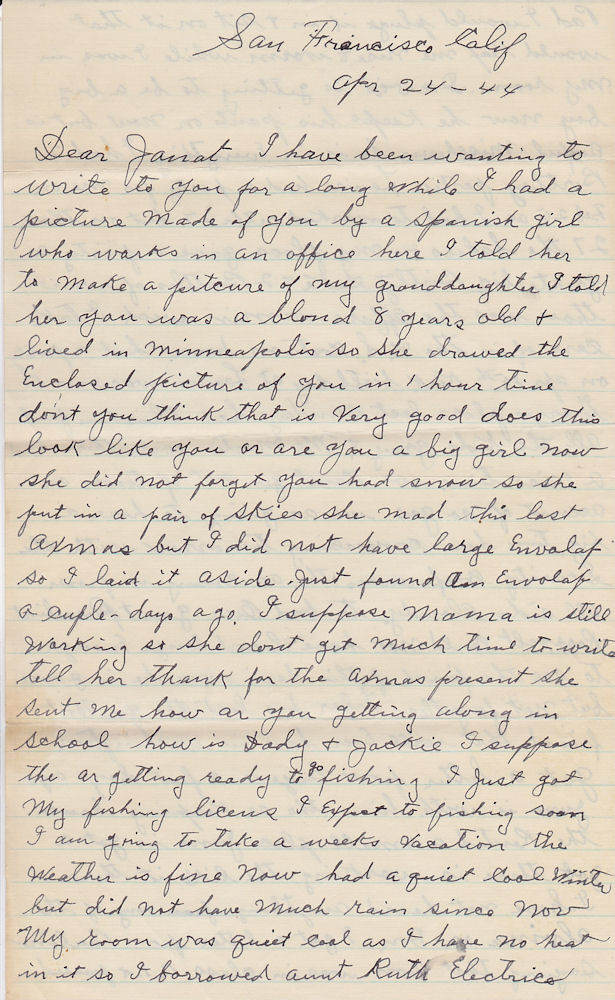 San Francisco Calif
Apr 24-44
Dear Janat I have been wanting to
write to you for a long while I had a
picture made of you by a spanish girl
who works in an office here I told her
to make a pitcure of my granddaughter I told
her you was a blond 8 years old +
lived in Minneapolis so she drawed the
Enclosed picture of you in 1 hour time
dont you think that is Very good does this
look like you or are you a big girl now
she did not forget you had snow so she
put in a pair of skies she mad this last
Axmas but I did not have large Envolap
so I laid it aside. Just found an Envolap
a cuple-days ago. I suppose Mama is still
Working so she dont get much time to write
tell her thank for the axmas present she
sent me how ar you getting along in
school how is Dady + Jackie I suppose
the ar getting ready to go fishing I Just got
My fishing licens I Expect to fishing soon
I am going to take a weeks Vacation the
Weather is fine Now had a quiet Cool Winter
but did not have much rain since Nov
My room was quiet cool as I have no heat
in it so I borrowed aunt Ruth Electrice